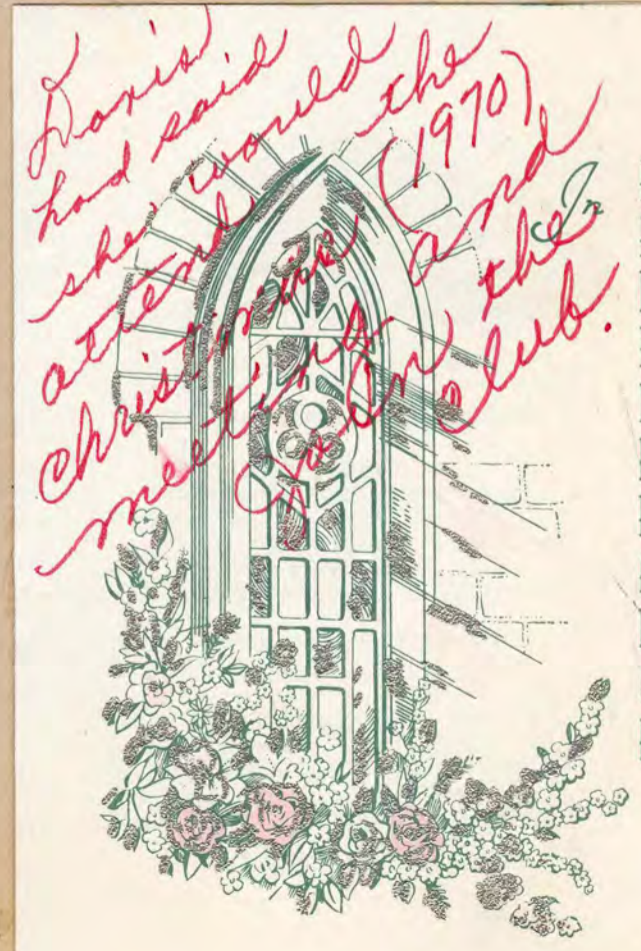 Doris
had said
she would
attend the
Christmas (1970)
meeting and
Join the
club.
In